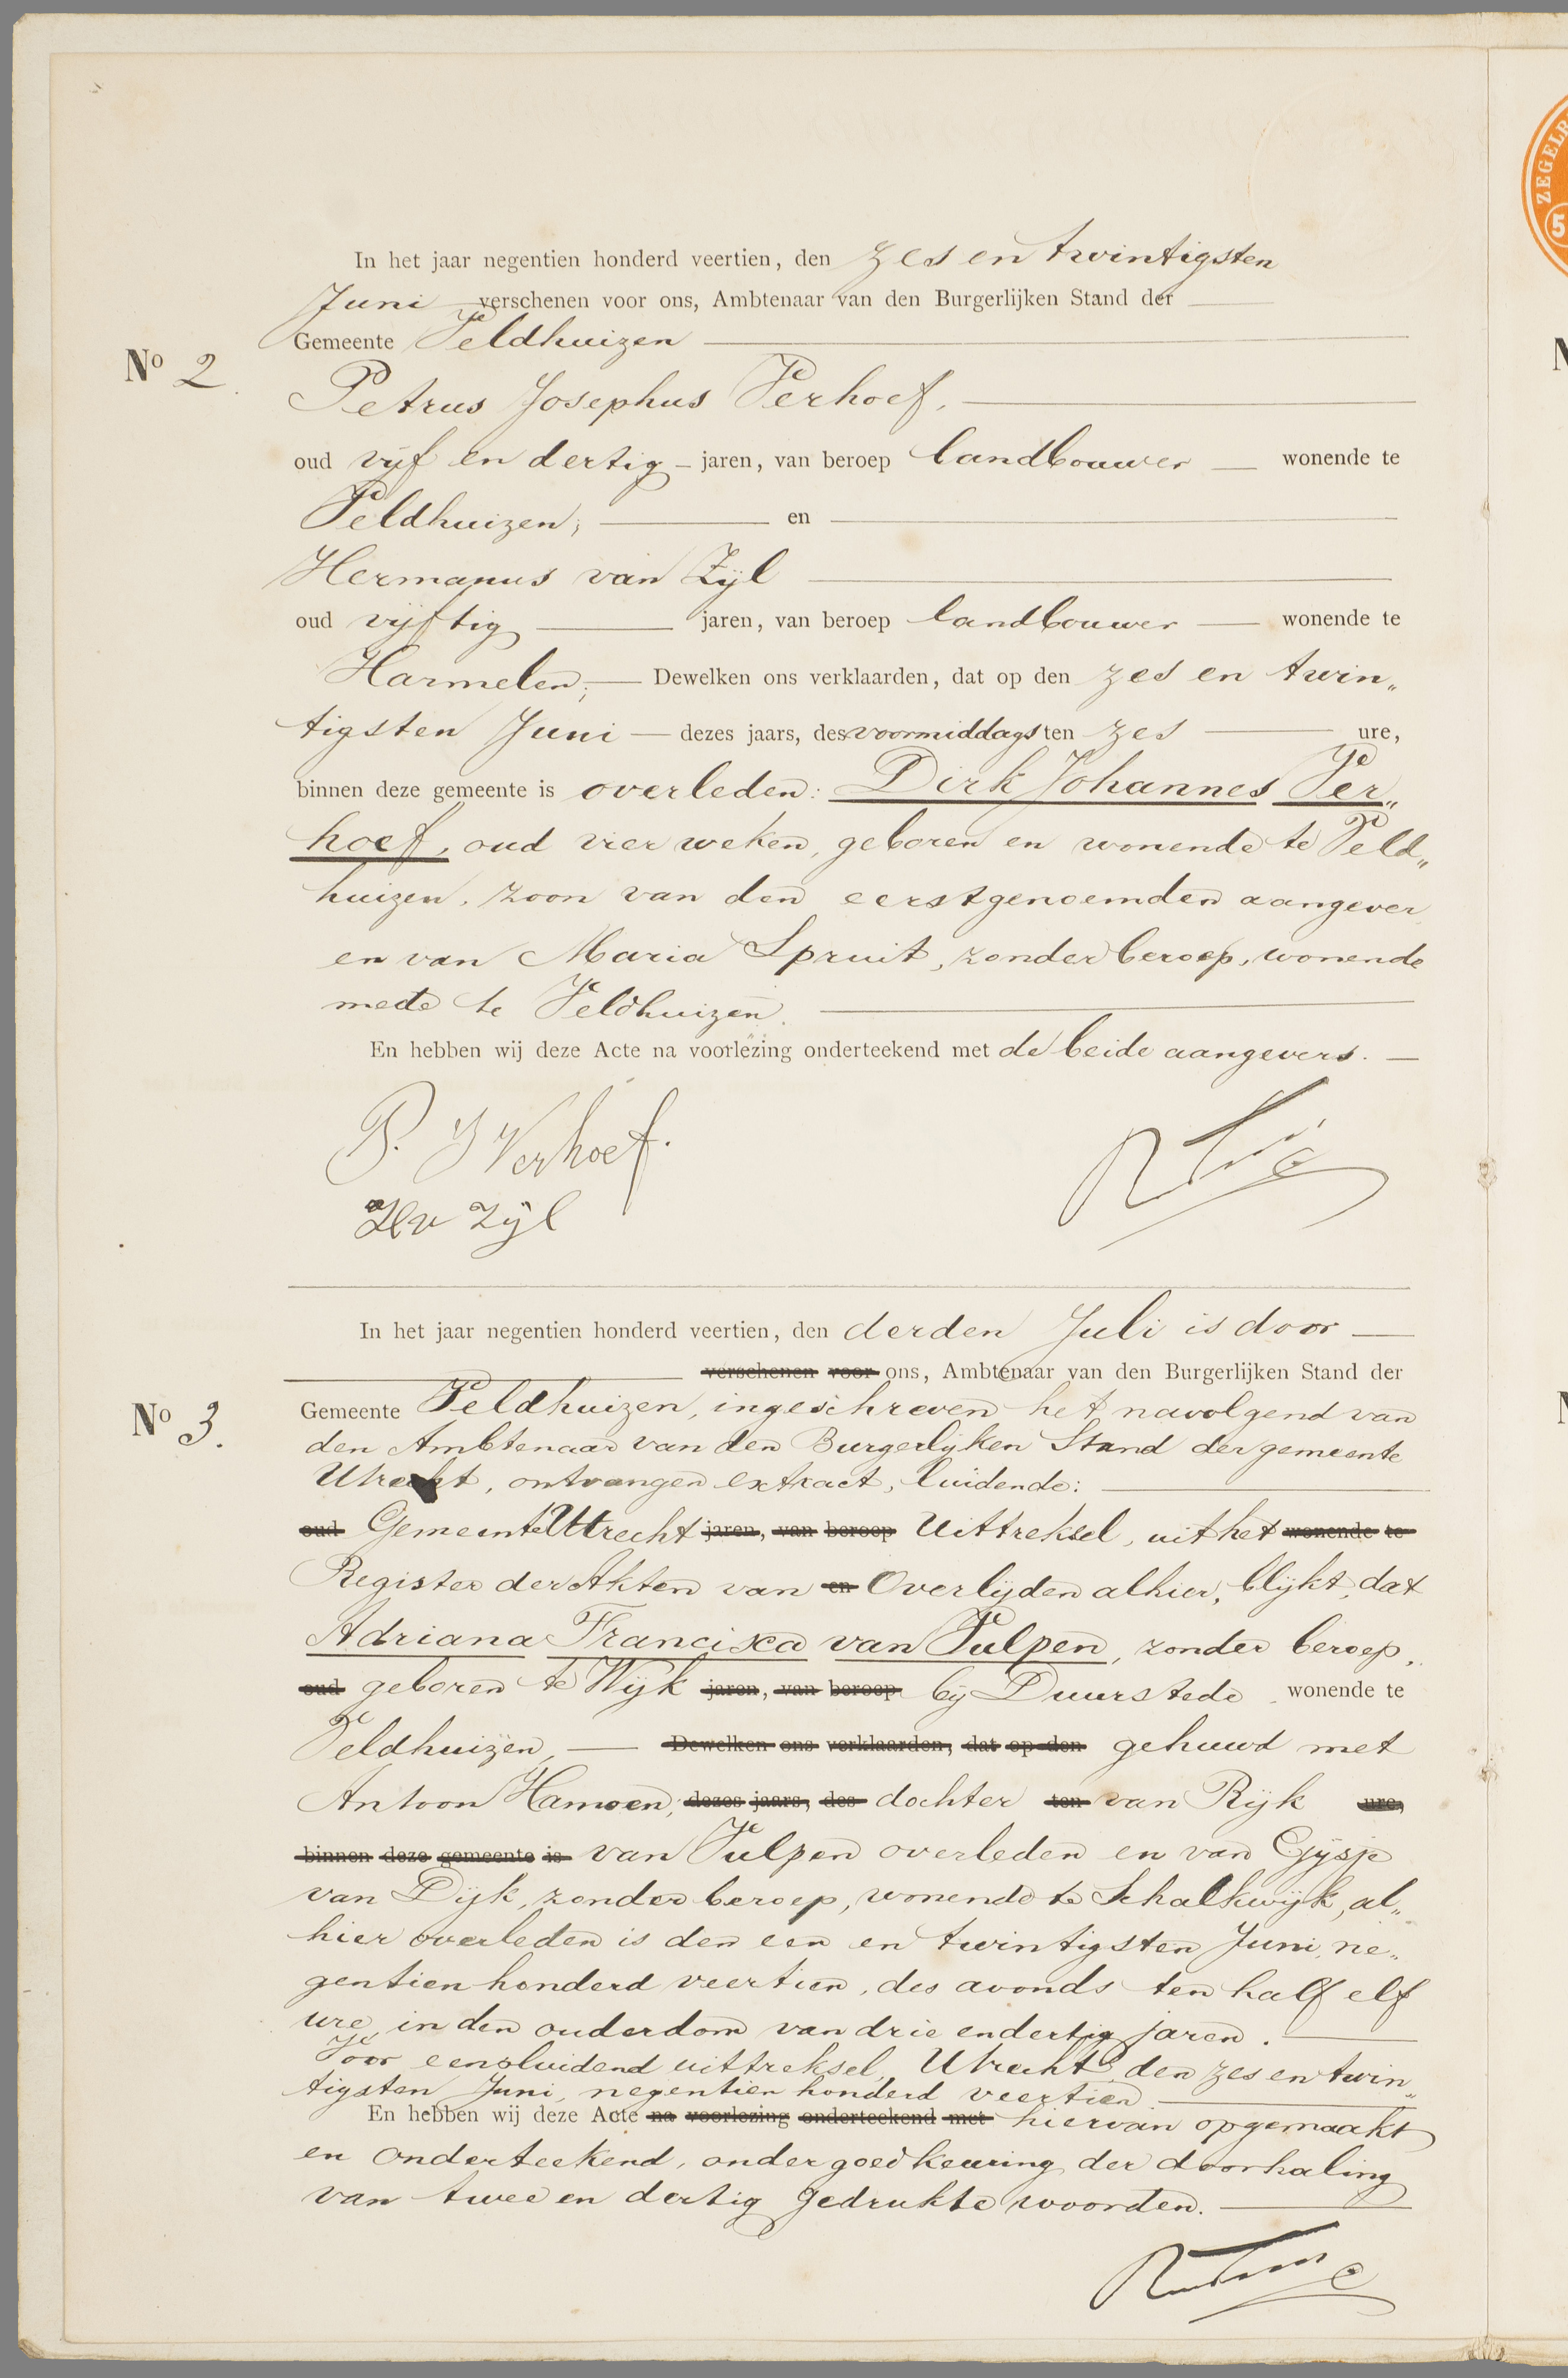 In het jaar negentien honderd veertien, den zes en twintigsten
Juni verschenen voor ons, Ambtenaar van den Burgerlijken Stand der
Gemeente Veldhuizen
No 2.
Petrus Josephus Verhoef,
oud vijf en dertig jaren, van beroep landbouwer wonende te
Veldhuizen; en
Hermanus van Zijl
oud vijftig jaren, van beroep landbouwer wonende te
Harmelen; Dewelken ons verklaarden, dat op den zes en twin„
tigsten Juni dezes jaars, des voormiddags ten zes ure,
binnen deze gemeente is overleden: Dirk Johannes Ver„
hoef, oud vier weken, geboren en wonende te Veld„
huizen, zoon van den eerstgenoemden aangever
en van Maria Spruit, zonder beroep, wonende
mede te Veldhuizen.
En hebben wij deze Acte na voorlezing onderteekend met de beide aangevers.
P. J Verhoef.
H v Zijl
In het jaar negentien honderd veertien, den derden Juli is door
verschenen voor ons, Ambtenaar van den Burgerlijken Stand der
Gemeente Veldhuizen, ingeschreven het navolgend van
No 3.
den Ambtenaar van den Burgerlijken Stand der gemeente
Utrecht, ontvangen extract, luidende:
oud Gemeente Utrecht jaren, van beroep Uittreksel, uit het wonende te
Register der Akten van en Overlijden alhier, blijkt, dat
Adriana Francisca van Vulpen, zonder beroep,
oud geboren te Wijk jaren, van beroep bij Duurstede wonende te
Veldhuizen, Dewelken ons verklaarden, dat op den gehuwd met
Antoon Hamoen, dezes jaars, des dochter ten van Rijk ure,
binnen deze gemeente is van Vulpen overleden en van Gijsje
van Dijk, zonder beroep, wonende te Schalkwijk, al„
hier overleden is den een en twintigsten Juni, ne„
gentien honderd veertien, des avonds ten half elf
ure, in den ouderdom van drie en dertig jaren.
Voor eensluidend uittreksel, Utrecht, den zes en twin„
tigsten Juni, negentien honderd veertien.
En hebben wij deze Acte na voorlezing onderteekend met hiervan opgemaakt
en onderteekend, onder goedkeuring der doorhaling
van twee en dertig gedrukte woorden.
ZEGELR
5